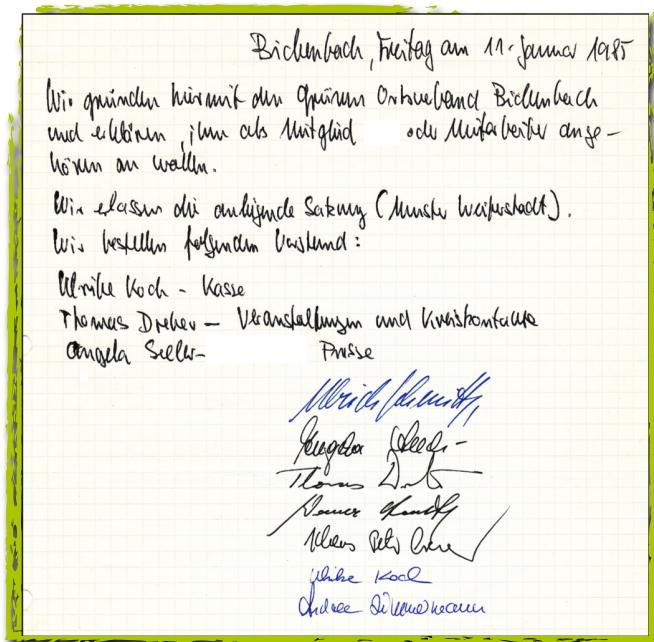 Bickenbach, Freitag am 11. Januar 1985
Wir gründen hiermit den Grünen Ortsverband Bickenbach
und erklären, ihm als Mitglied oder Mitarbeiter ange-
hören zu wollen.
Wir erlassen die anliegende Satzung (Muster Weiterstadt).
Wir bestellen folgenden Vorstand:
Ulrike Koch - Kasse
Thomas Dreher - Veranstaltungen und Kreiskontakte
Angela Presse
Ulrich Schmitt
Angela
Thomas
Klaus Peter
Ulrike Koch
Andrea Zimmermann